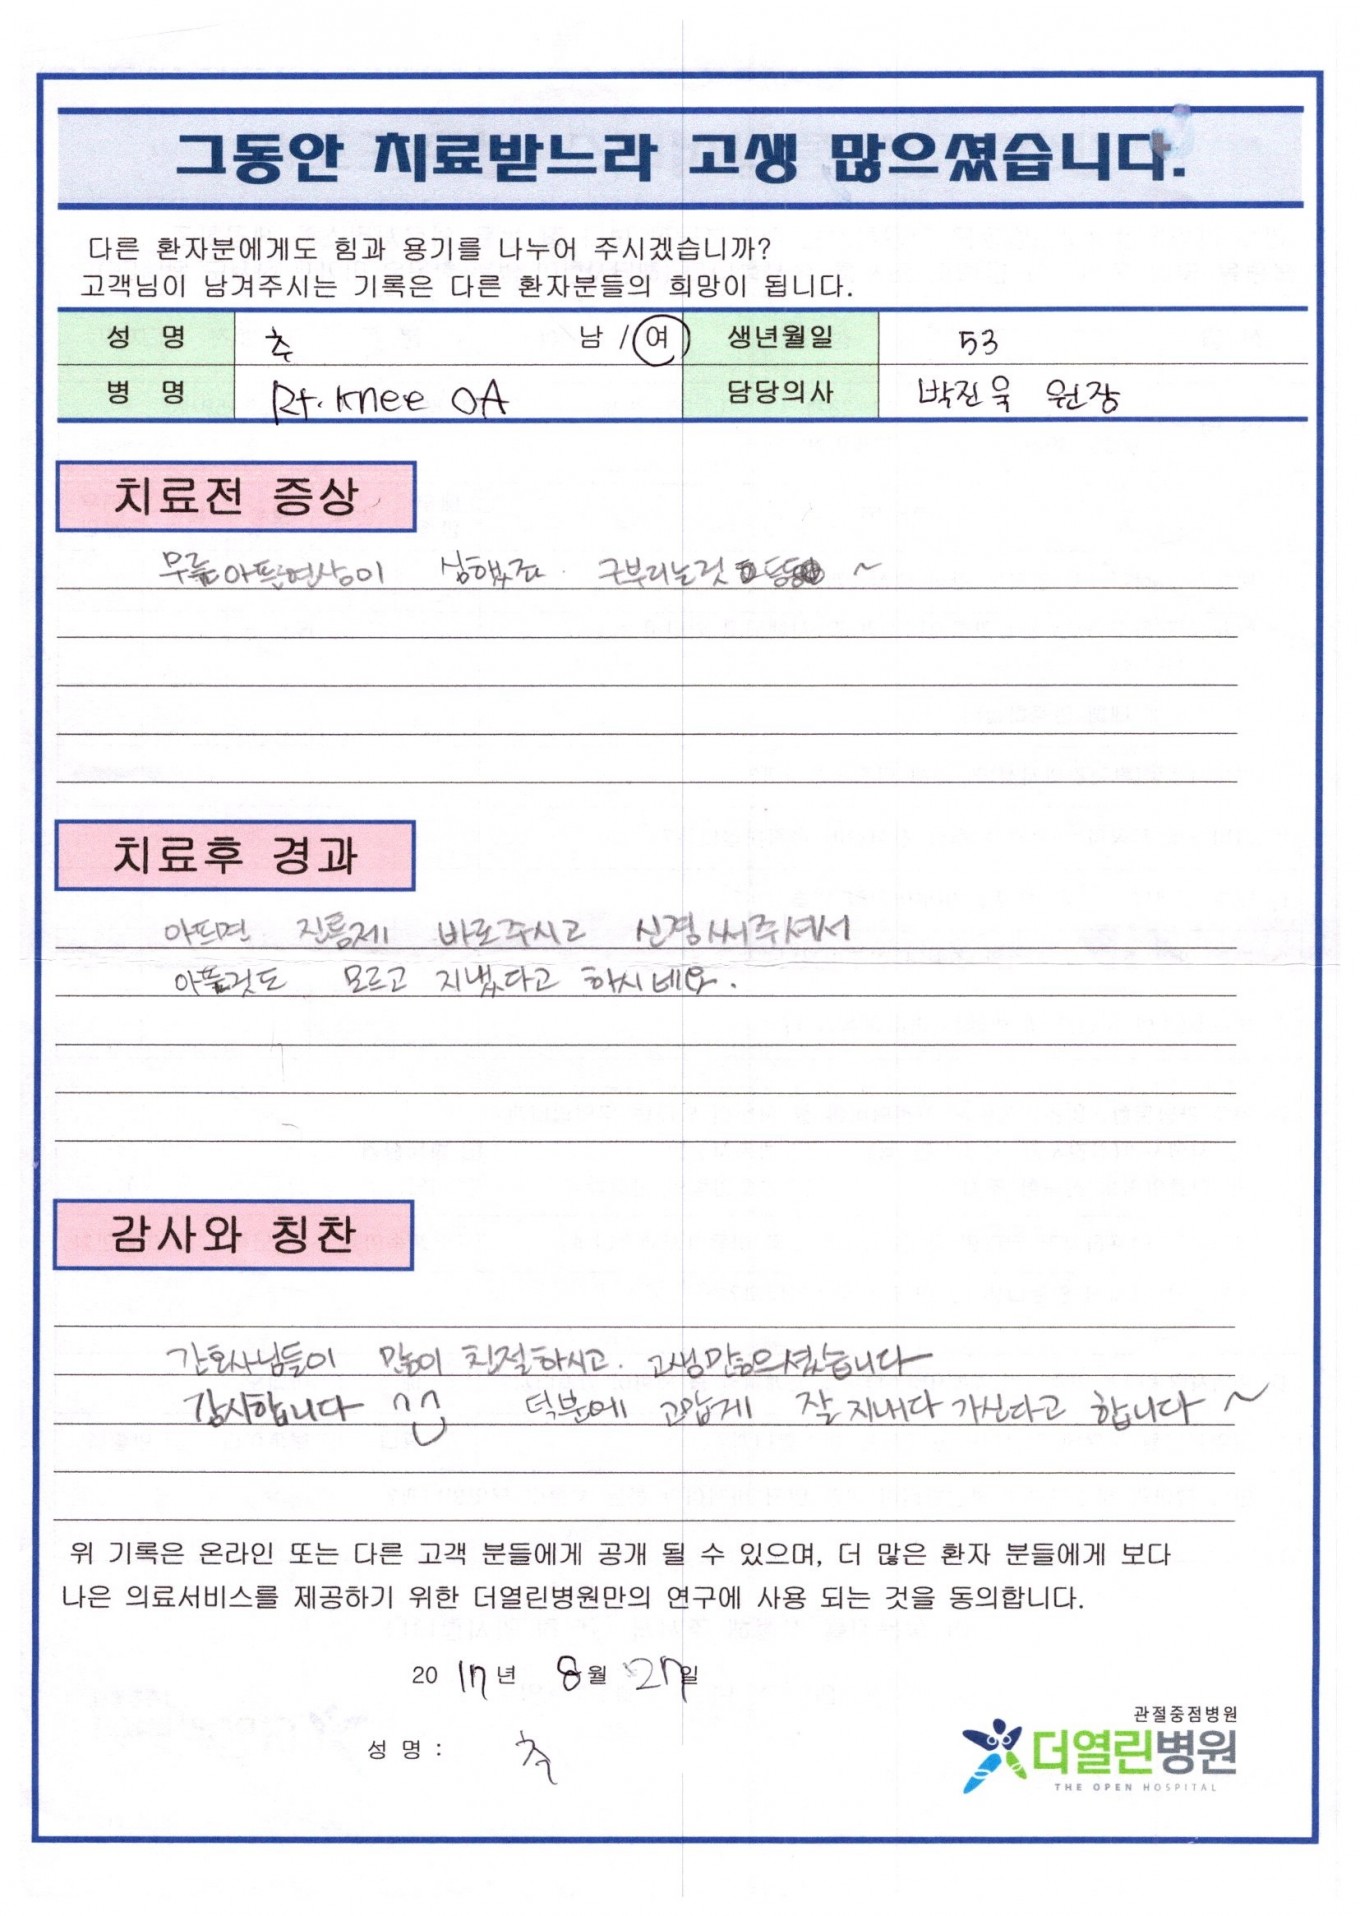 그동안 치료받느라 고생 많으셨습니다.
다른 환자분에게도 힘과 용기를 나누어 주시겠습니까?
고객님이 남겨주시는 기록은 다른 환자분들의 희망이 됩니다.
성 명 추 남 / 여 생년월일 53
병 명 Rt. knee OA 담당의사 박진욱 원장
치료전 증상
무릎 아픈현상이 심했죠. 구부리는것 등등 ~
치료후 경과
아프면 진통제 바로주시고 신경써주셔서
아픈것도 모르고 지냈다고 하시네요.
감사와 칭찬
간호사님들이 많이 친절하시고. 고생많으셨습니다
감사합니다 덕분에 고맙게 잘 지내다 가신다고 합니다 ~
위 기록은 온라인 또는 다른 고객 분들에게 공개 될 수 있으며, 더 많은 환자 분들에게 보다
나은 의료서비스를 제공하기 위한 더열린병원만의 연구에 사용 되는 것을 동의합니다.
20 17 년 8 월 27 일
성 명 : 추
관절중점병원
더열린병원
THE OPEN HOSPITAL